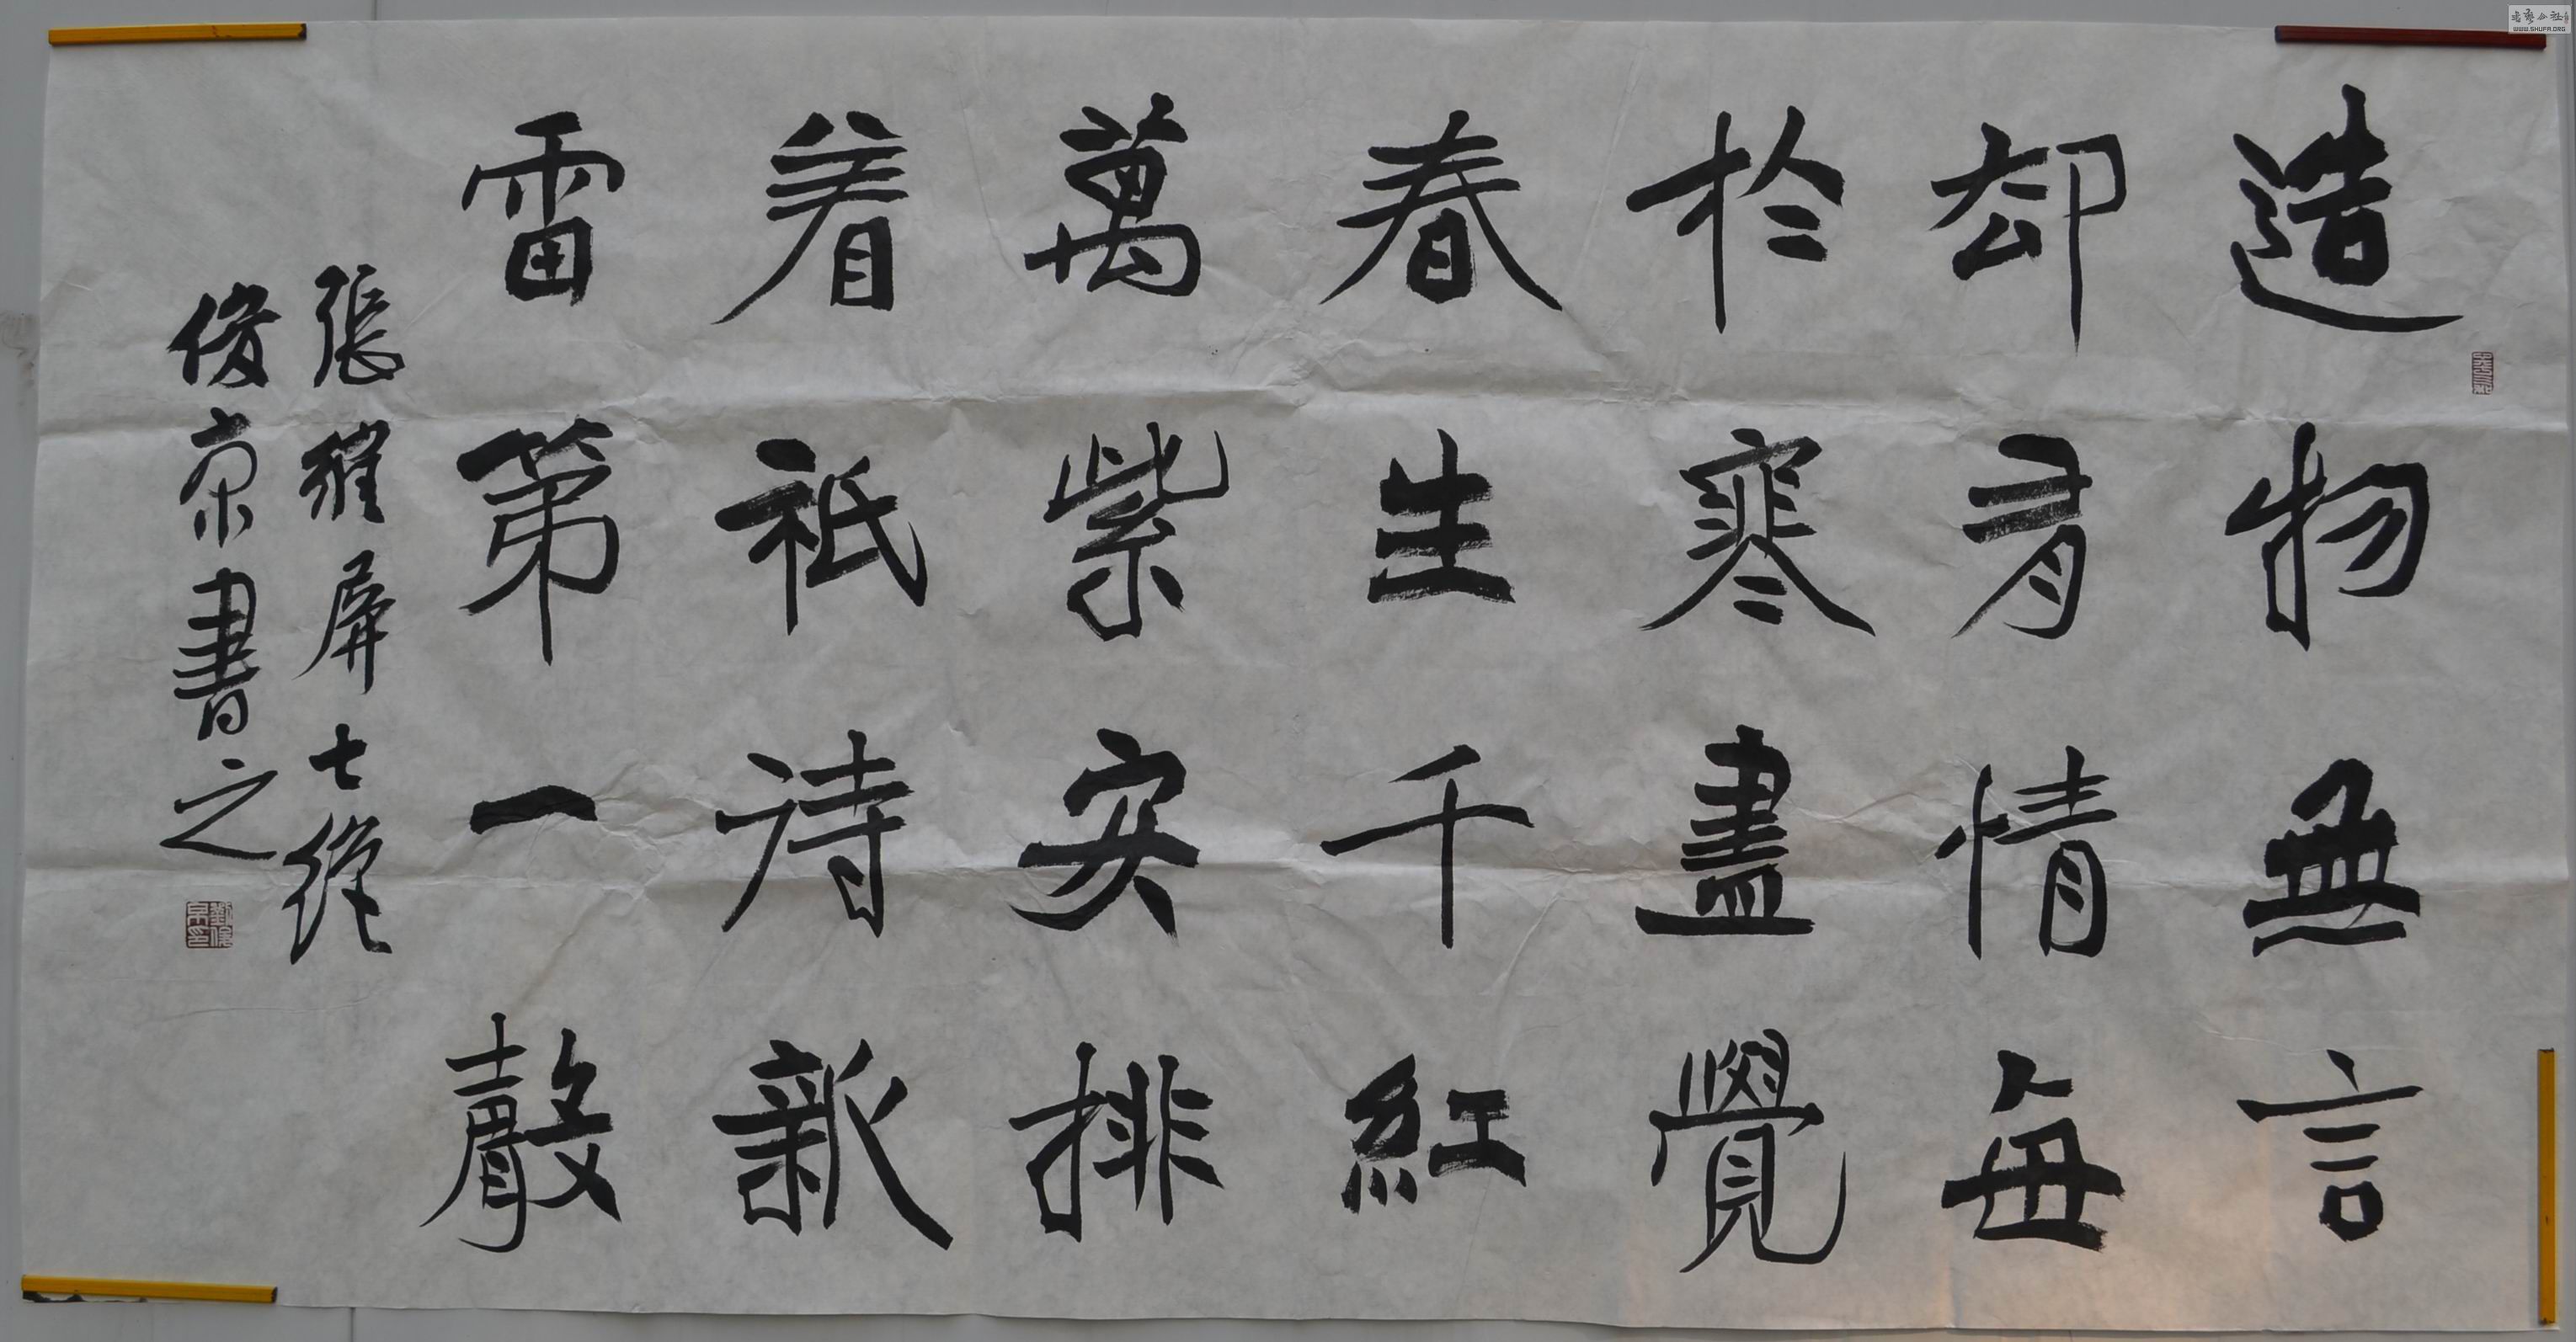 造物無言
却有情每
於寒盡覺
春生千紅
萬紫安排
着祇待新
雷第一聲
張維屏七絕
俊京書之
WWW.SHUFA.ORG